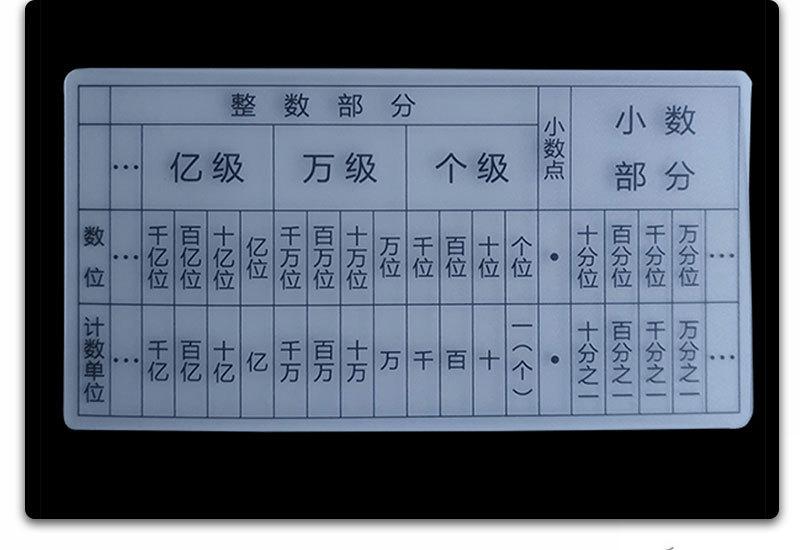 整数部分 小数点 小数部分
… 亿级 万级 个级
数位 … 千亿位 百亿位 十亿位 亿位 千万位 百万位 十万位 万位 千位 百位 十位 个位 • 十分位 百分位 千分位 万分位 …
计数单位 … 千亿 百亿 十亿 亿 千万 百万 十万 万 千 百 十 一(个) • 十分之一 百分之一 千分之一 万分之一 …